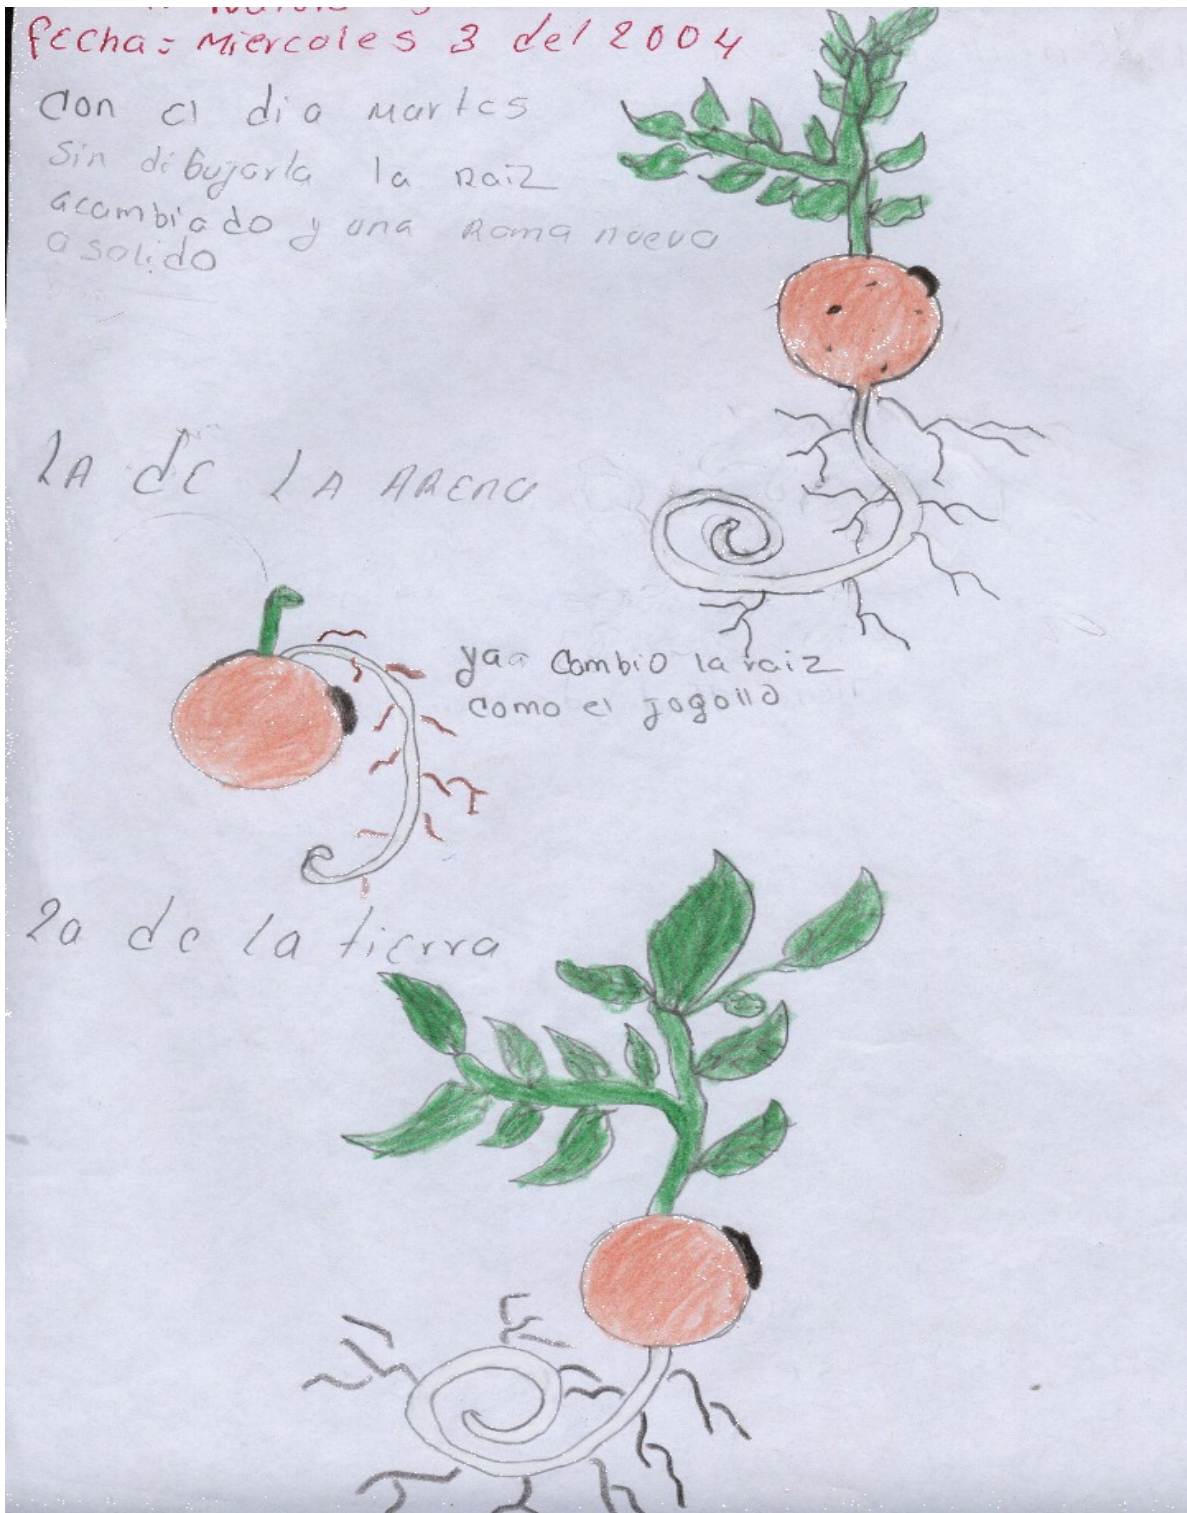 fecha: Miercoles 3 del 2004
con el dia Martes
Sin dibujarla la Raiz
acambiado y una Rama nueva
a salido
LA de LA ARENA
yaa cambio la raiz
como el jogollo
2a de la tierra